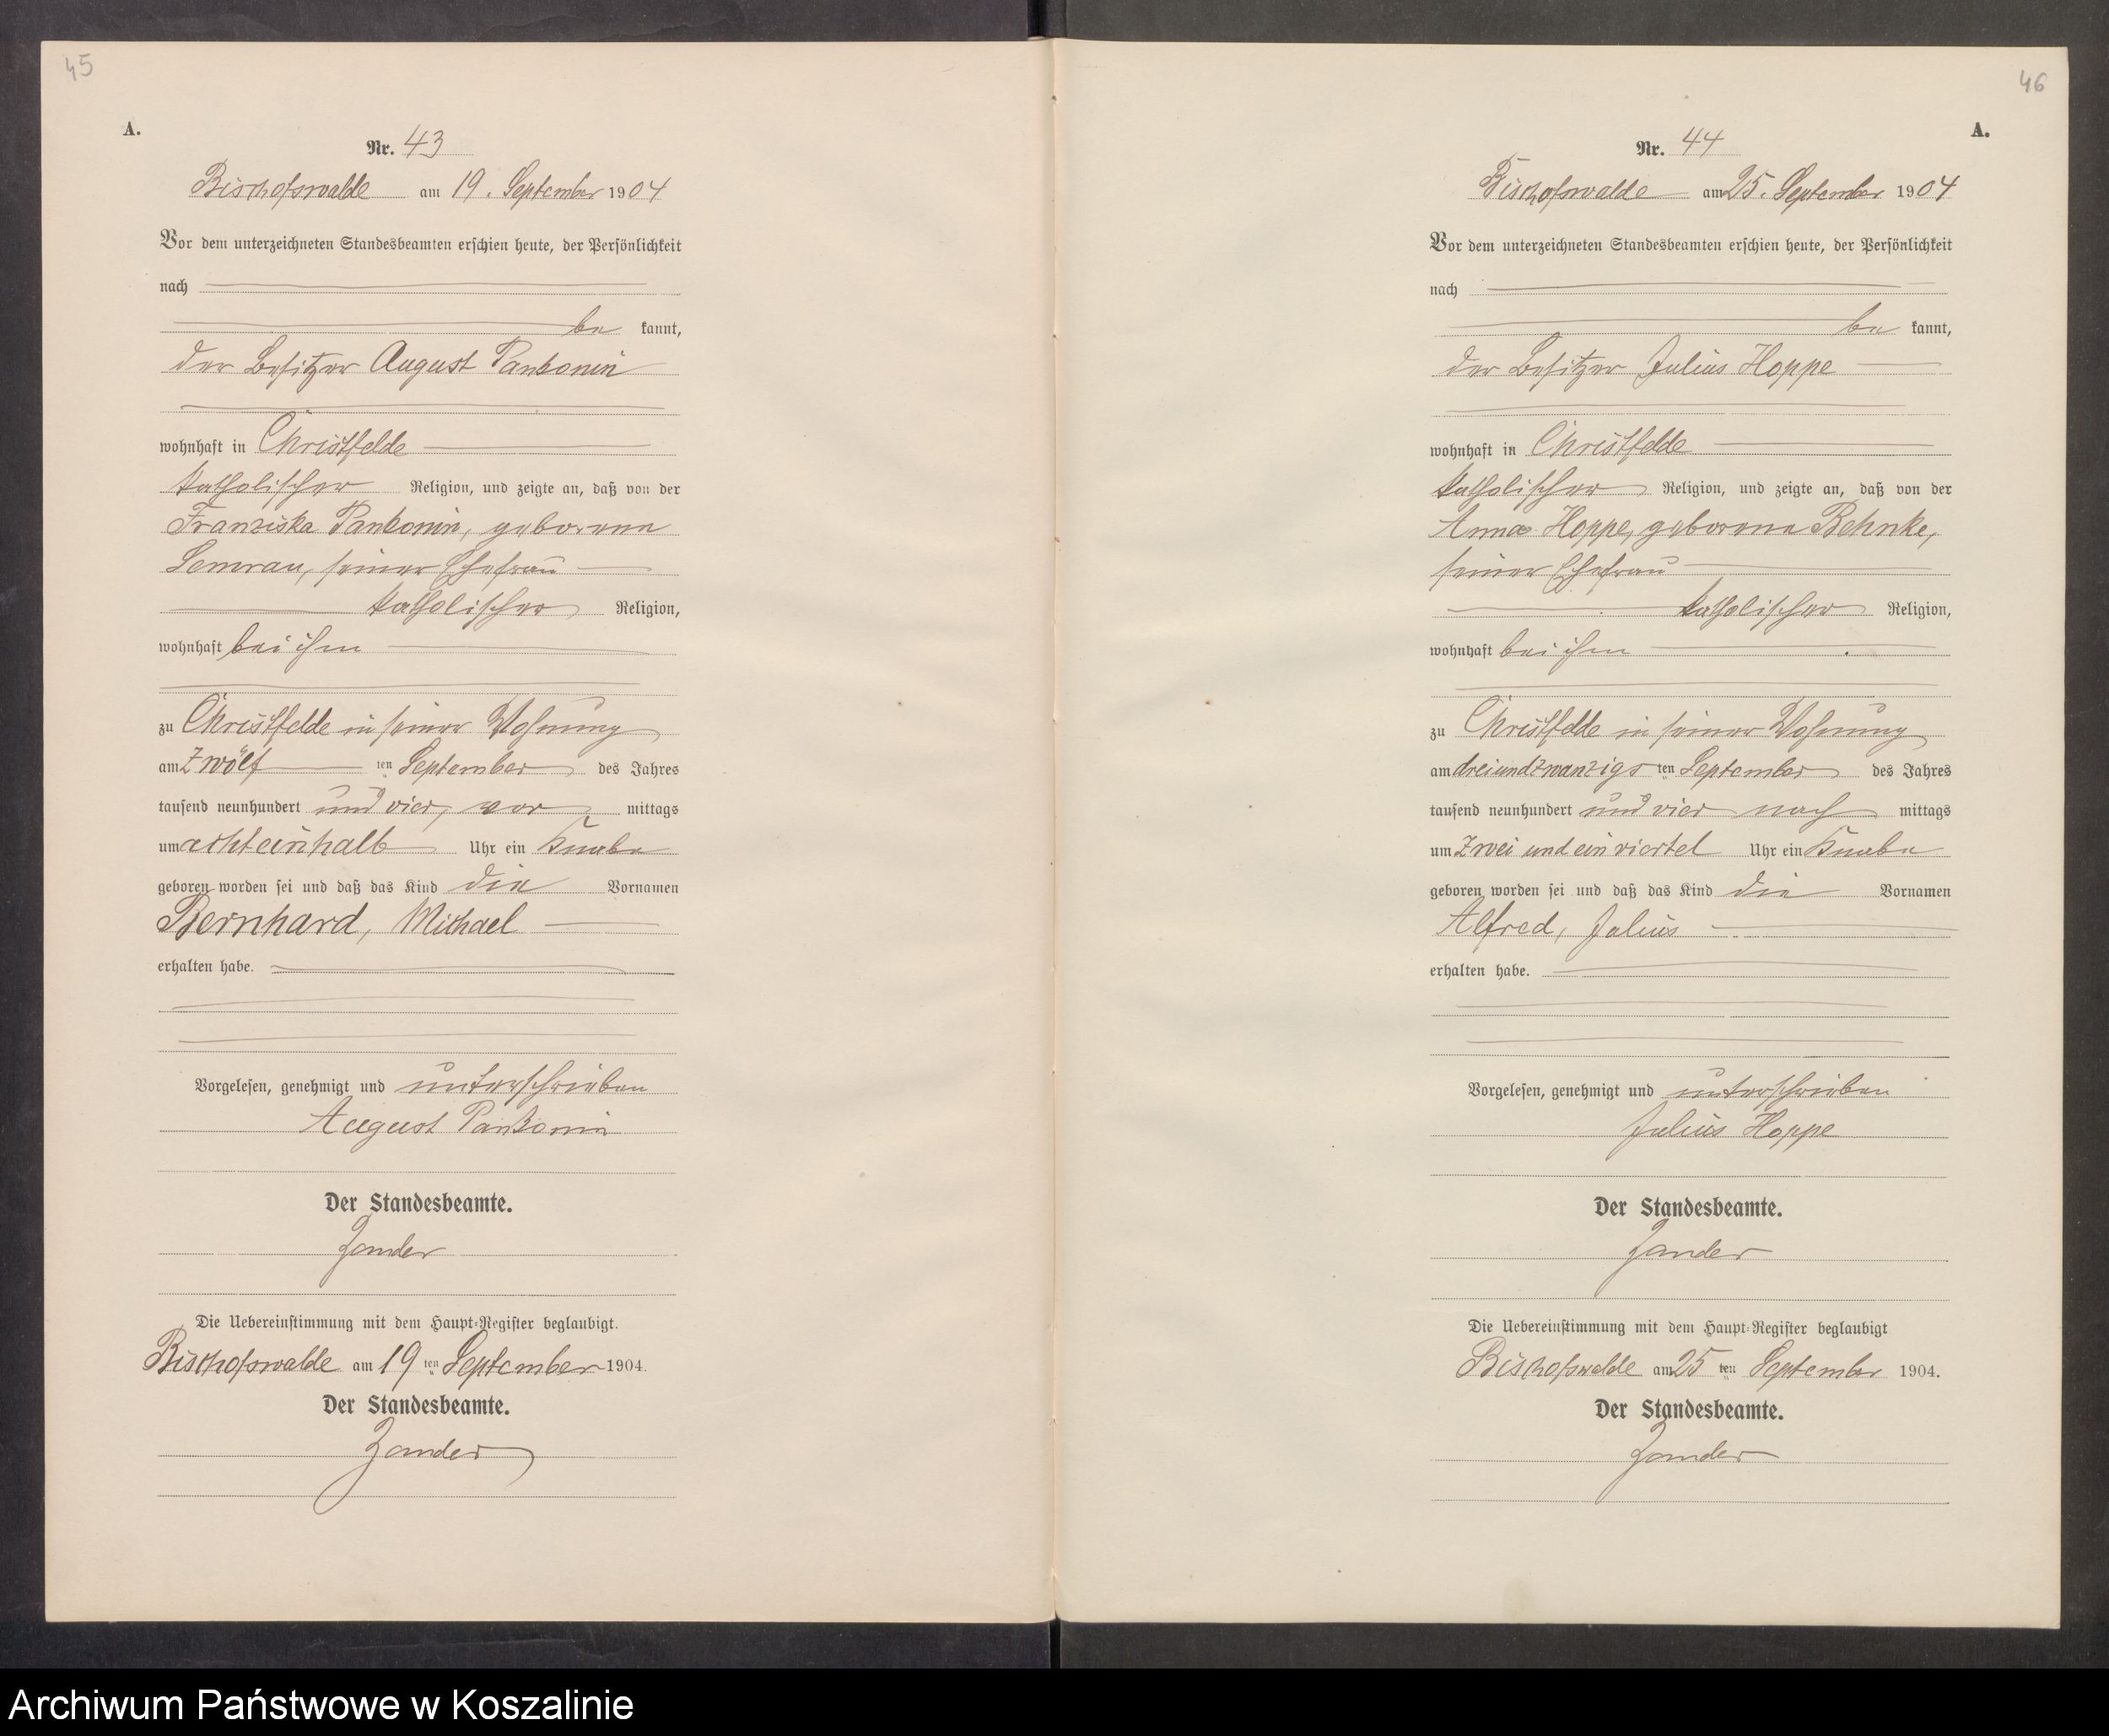 45
A.
Nr. 43
Bischofswalde am 19. September 1904
Vor dem unterzeichneten Standesbeamten erschien heute, der Persönlichkeit
nach
be kannt,
der Besitzer August Pankonin
wohnhaft in Christfelde
katholischer Religion, und zeigte an, daß von der
Franziska Pankonin, geborene
Semrau, seiner Ehefrau
katholischer Religion,
wohnhaft bei ihm
zu Christfelde in seiner Wohnung
am zwölf ten September des Jahres
tausend neunhundert und vier, vor mittags
um achteinhalb Uhr ein Knabe
geboren worden sei und daß das Kind die Vornamen
Bernhard, Michael
erhalten habe.
Vorgelesen, genehmigt und unterschrieben
August Pankonin
Der Standesbeamte.
Zander
Die Uebereinstimmung mit dem Haupt-Register beglaubigt.
Bischofswalde am 19 ten September 1904.
Der Standesbeamte.
Zander
46
A.
Nr. 44
Bischofswalde am 25. September 1904
Vor dem unterzeichneten Standesbeamten erschien heute, der Persönlichkeit
nach
be kannt,
der Besitzer Julius Hoppe
wohnhaft in Christfelde
katholischer Religion, und zeigte an, daß von der
Anna Hoppe, geborene Behnke,
seiner Ehefrau
katholischer Religion,
wohnhaft bei ihm
zu Christfelde in seiner Wohnung
am dreiundzwanzigs ten September des Jahres
tausend neunhundert und vier nach mittags
um zwei und ein viertel Uhr ein Knabe
geboren worden sei und daß das Kind die Vornamen
Alfred, Julius
erhalten habe.
Vorgelesen, genehmigt und unterschrieben
Julius Hoppe
Der Standesbeamte.
Zander
Die Uebereinstimmung mit dem Haupt-Register beglaubigt
Bischofswalde am 25 ten September 1904.
Der Standesbeamte.
Zander
Archiwum Państwowe w Koszalinie